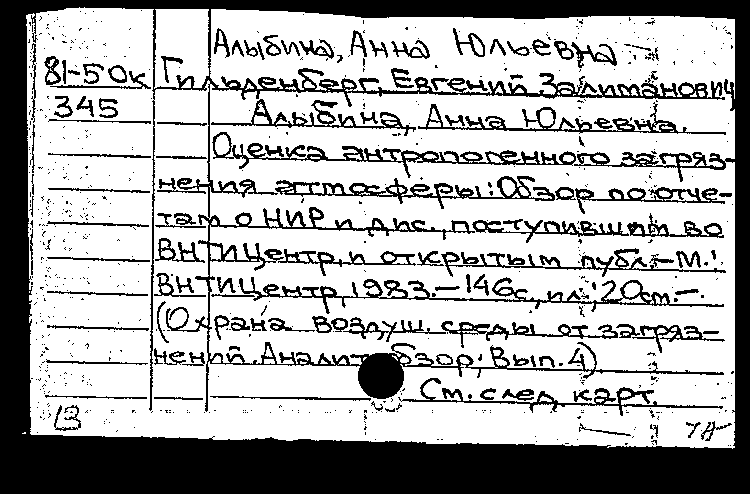 Алыбина, Анна Юльевна
81-50к Гильденберг, Евгений Залиманович
345 Алыбина, Анна Юльевна.
Оценка антропогенного загряз-
нения атмосферы: Обзор по отче-
там о НИР и дис., поступившим во
ВНТИЦентр, и открытым публ. - М.:
ВНТИЦентр, 1983. - 146с., ил.; 20см. -
(Охрана воздуш. среды от загряз-
нений. Аналит. обзор; Вып. 4)
См. след. карт.